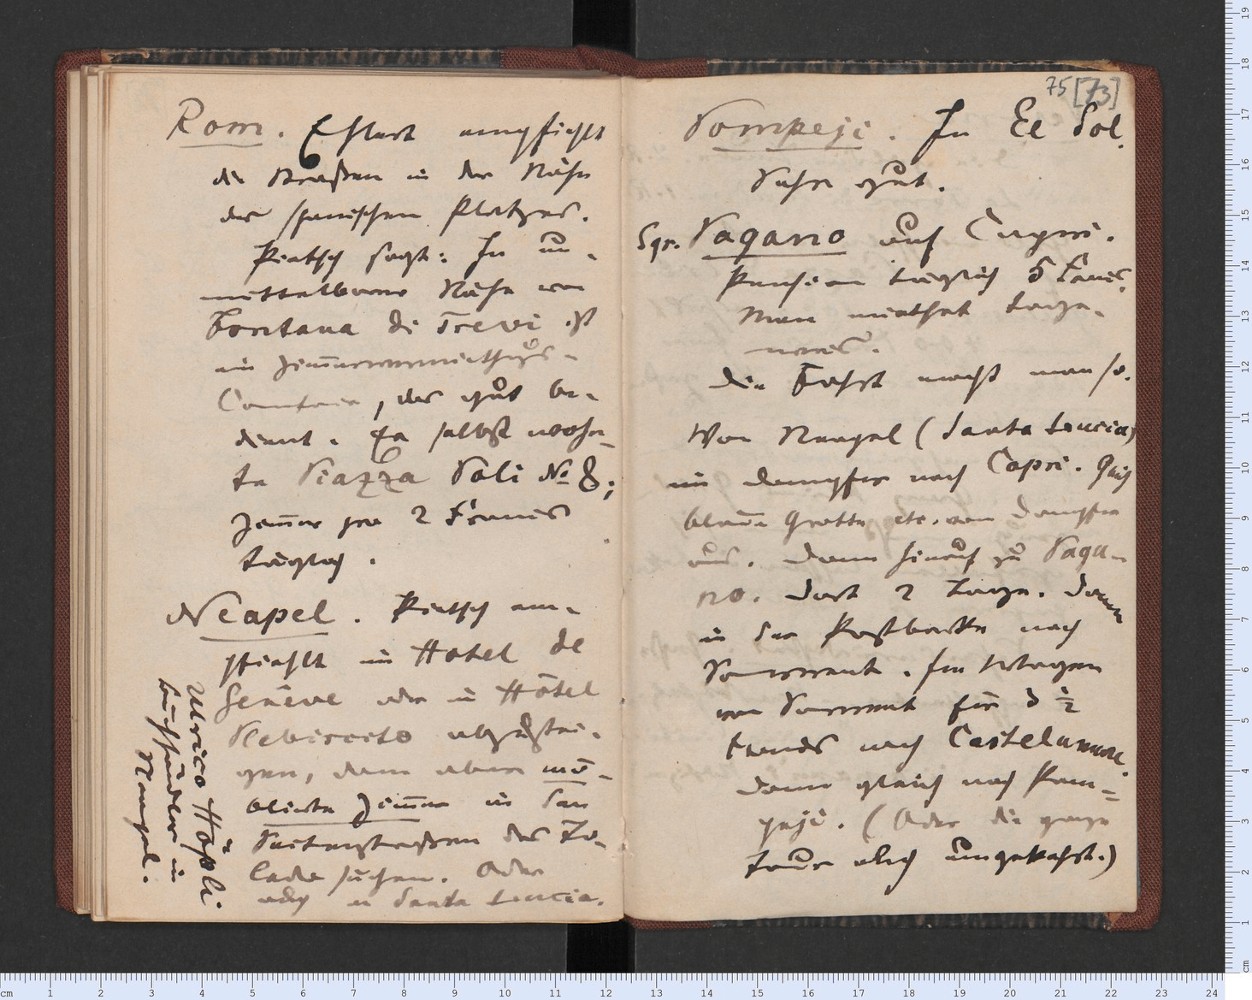 Rom. Ehlert empfiehlt
die Straßen in der Nähe
des spanischen Platzes.
Pietsch sagt: In un-
mittelbarer Nähe von
Fontana di Trevi ist
ein Zimmervermiethungs-
Comtoir, das gut be-
dient. Er selbst wohn-
te Piazza Poli No 8;
Zimmer pro 2 Francs
täglich.
Neapel. Pietsch em-
pfiehlt im Hotel de
Genève oder in Hôtel
Plebiscito abzustei-
gen, dann aber mö-
blirte Zimmer in den
Seitenstraßen des To-
ledo suchen. Oder
auch in Santa Lucia.
Ulrico Höpli.
Buchhändler in
Neapel.
75 [73]
Pompeji. In El Sol.
Sehr gut.
Sgr. Pagano auf Capri.
Pension täglich 5 Francs.
Man miethet tage-
weis.
Die Fahrt macht man so.
Von Neapel (Santa Lucia)
im Dampfer nach Capri. Gleich
blaue Grotte etc. vom Dampfer
aus. Dann hinauf zu Paga-
no. Dort 2 Tage. Dann
in der Postbarke nach
Sorrent. Im Wagen
von Sorrent für 3 ½
Francs nach Castelamare.
Dann gleich nach Pom-
peji. (Oder die ganze
Tour auch umgekehrt.)